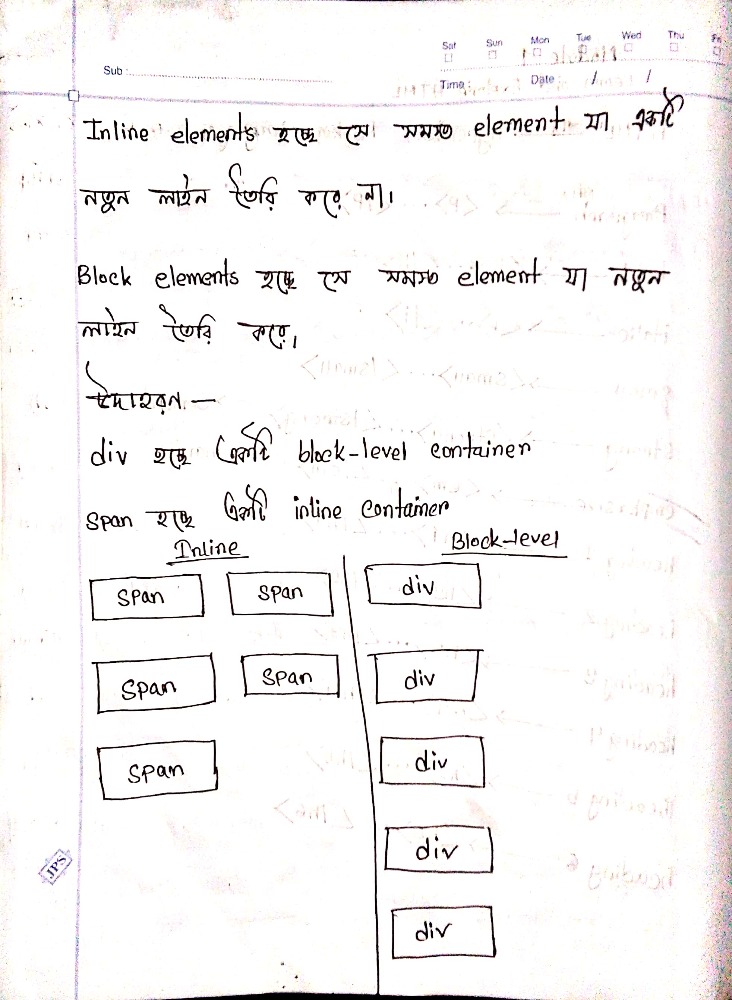 Sat Sun Mon Tue Wed Thu Fr
Sub :
Time : Date : / /
Inline elements হচ্ছে সে সমস্ত element যা একটি
নতুন লাইন তৈরি করে না।
Block elements হচ্ছে সে সমস্ত element যা নতুন
লাইন তৈরি করে।
উদাহরন —
div হচ্ছে একটি block-level container
span হচ্ছে একটি inline container
Inline Block-level
span span div
span span div
span div
div
div
JPS